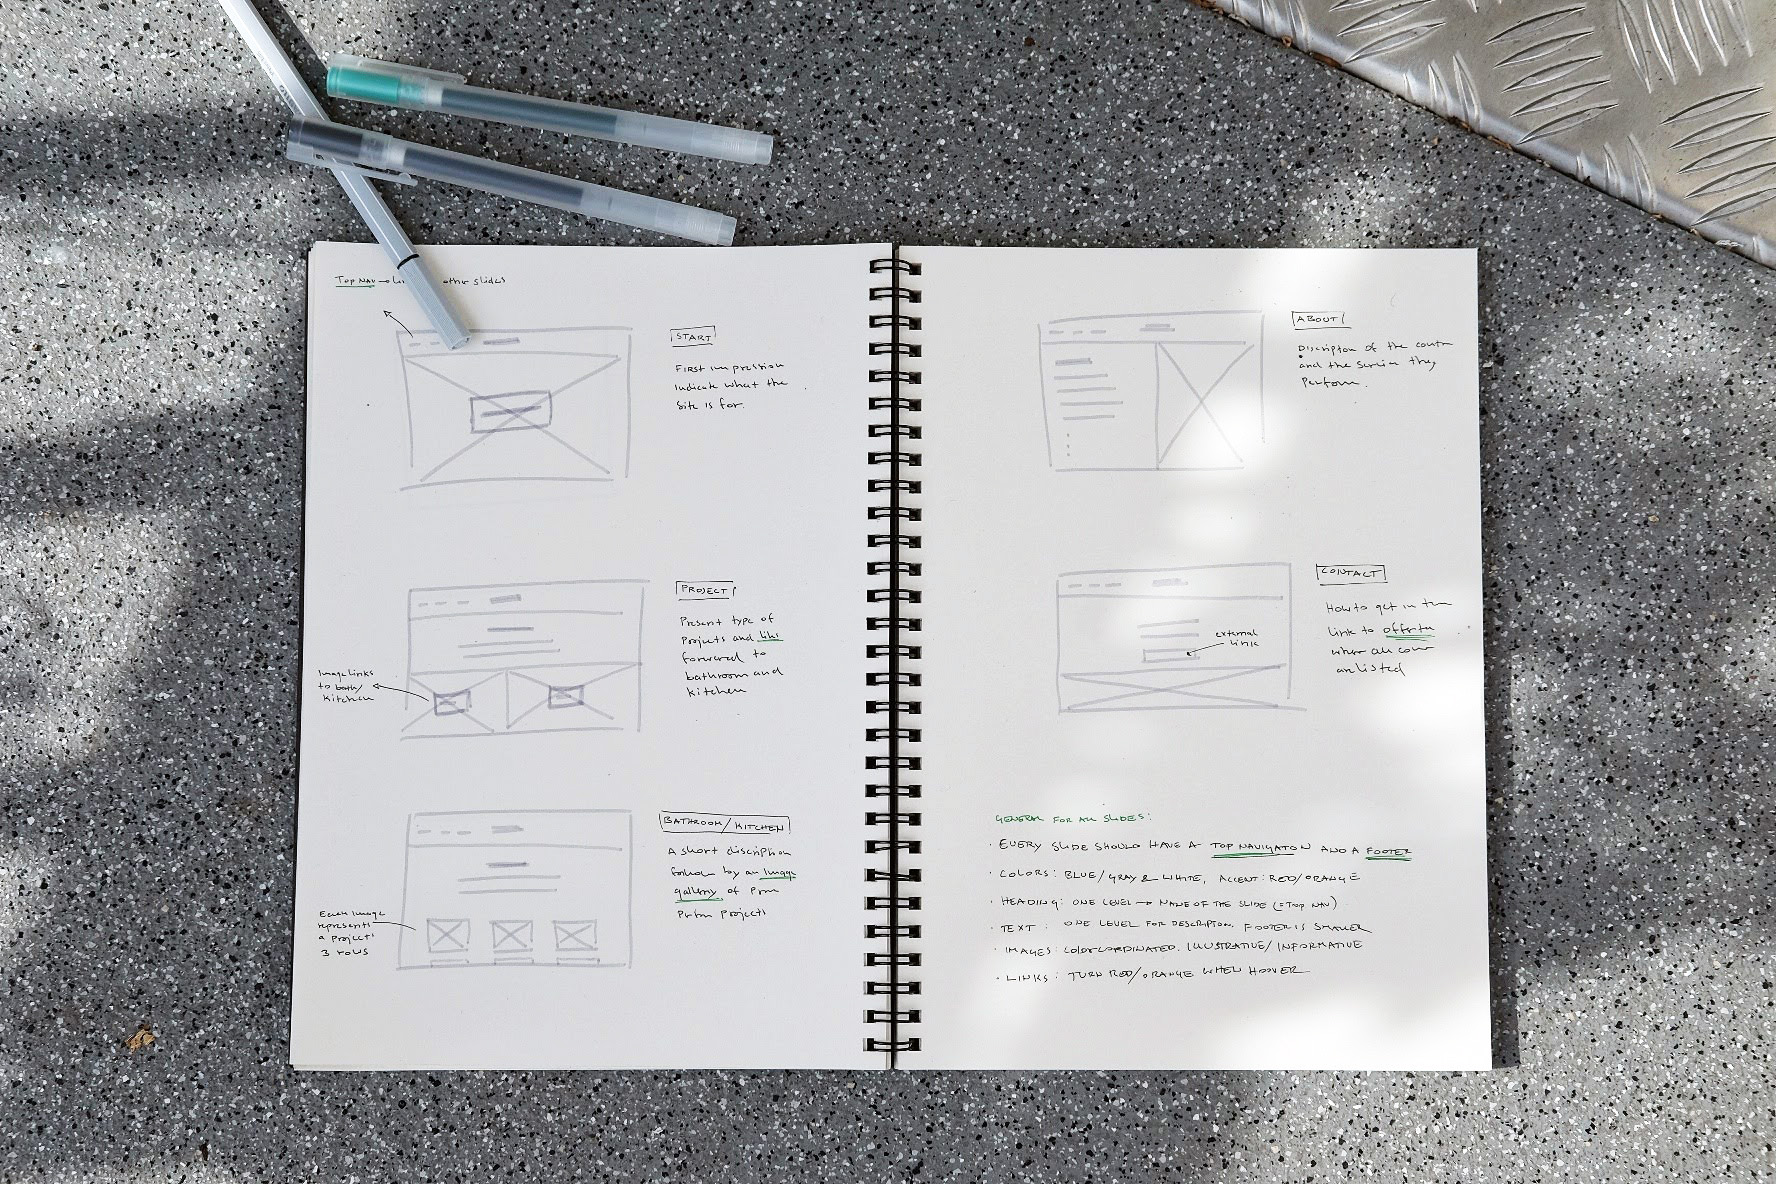 TOP NAV → other slides
START
First impression
indicate what the
site is for.
PROJECT
Present type of
projects and
forward to
bathroom and
kitchen
Image links
to bath/
kitchen
BATHROOM/KITCHEN
A short discription
by an image
gallery of
projects
Each image
represents
a project
3 rows
ABOUT
Discription of the
and the service they
perform.
CONTACT
How to get in
link to
external
link
listed
GENERAL FOR ALL SLIDES:
· EVERY SLIDE SHOULD HAVE A TOP NAVIGATON AND A FOOTER
· COLORS: BLUE/GRAY & WHITE, ACCENT: RED/ORANGE
· HEADING: ONE LEVEL → NAME OF THE SLIDE (=TOP NAV)
· TEXT: ONE LEVEL FOR DESCRIPTION. FOOTER IS SMALLER
· IMAGES: COLOR COORDINATED. ILLUSTRATIVE/INFORMATIVE
· LINKS: TURN RED/ORANGE WHEN HOOVER